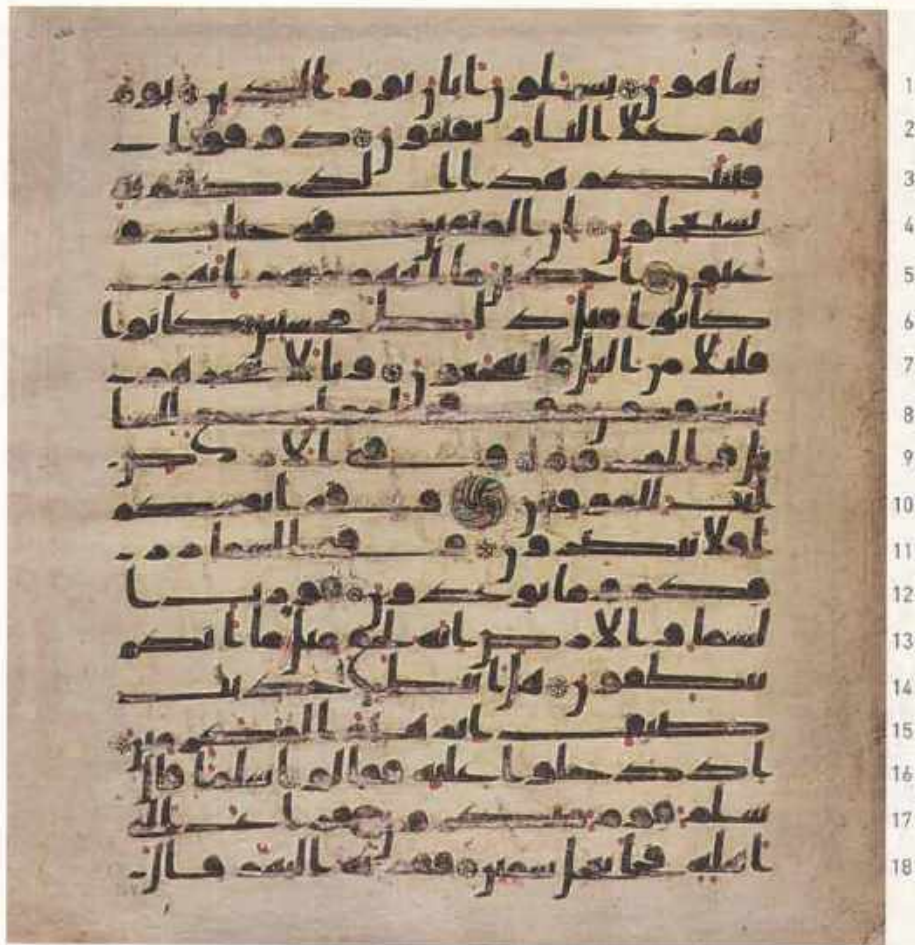 1 ساهون يسئلون ايان يوم الدين يو
2 م هم علا النار يفتنون ذوقوا
3 فتنتكم هذا الذى كنتم به
4 تستعجلون ان المتقين فى جنات و
5 عيون اخذين ما اتهم ربهم انهم
6 كانوا قبل ذلك محسنين كانوا
7 قليلا من اليل ما يهجعون وبالاسحر هم
8 يستغفرون وفى امولهم حق للسا
9 ئل والمحروم وفى الارض
10 ايت للموقنين وفى انفسكم
11 افلا تبصرون وفى السما
12 رزقكم وما توعدون فورب ا
13 لسما والارض انه لحق مثل ما انكم
14 تنطقون هل اتىك حديث
15 ضيف ابرهيم المكرمين
16 اذ دخلوا عليه فقالوا سلما قال
17 سلم قوم منكرون فراغ الى
18 اهله فجا بعجل سمين فقربه اليهم قال